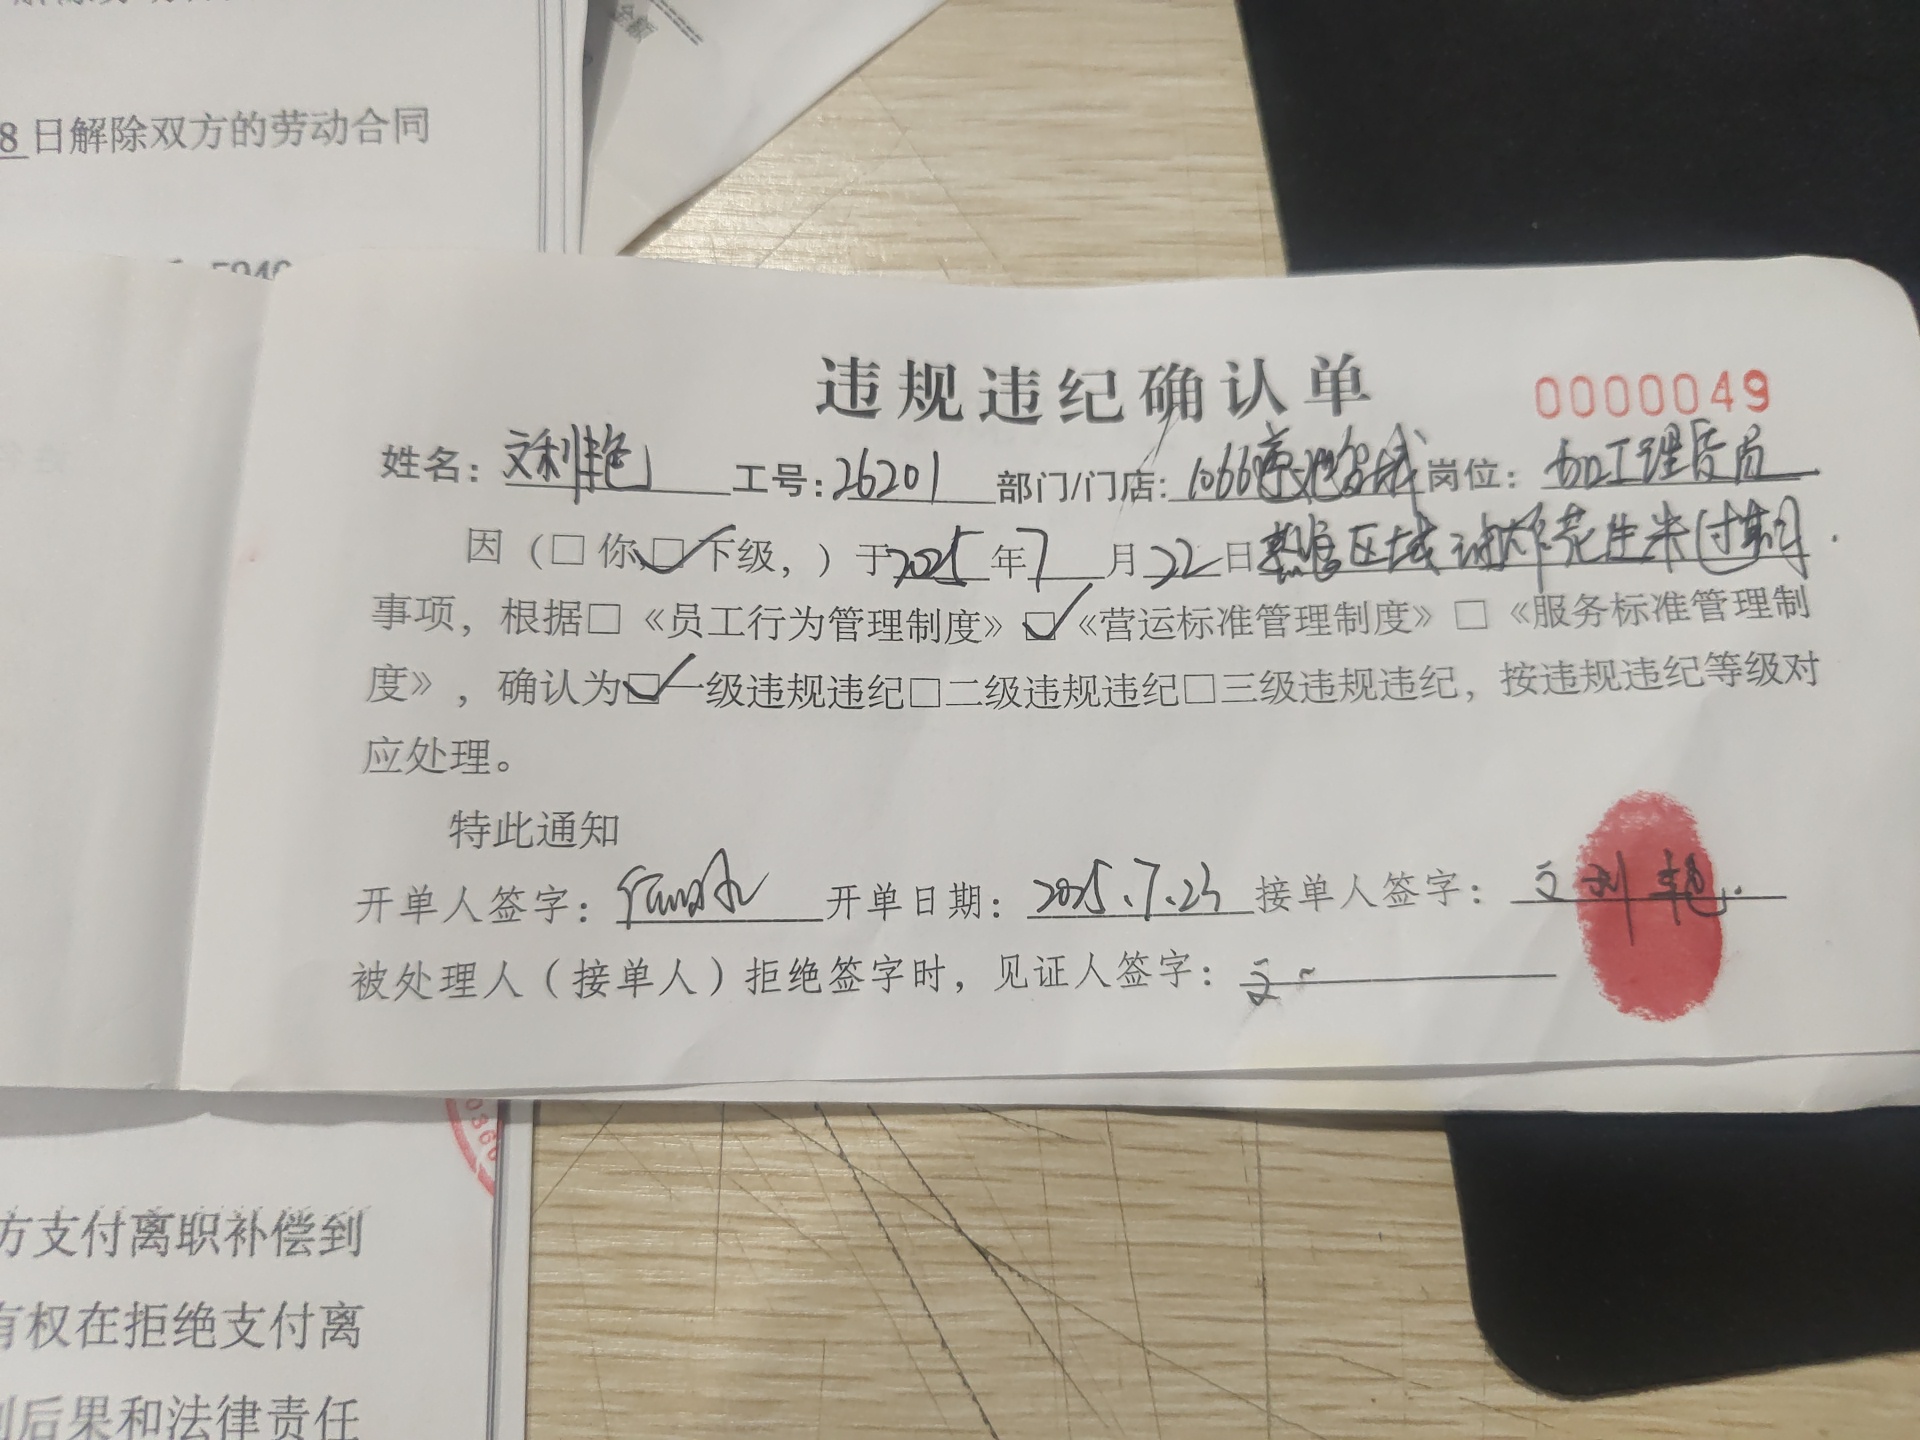 8日解除双方的劳动合同
违规违纪确认单
0000049
姓名：文利艳 工号：26201 部门/门店：1066 岗位：加工理货员
因（□你，☑下级，）于2025年7月22日熟食区域油炸花生米过期.
事项，根据□《员工行为管理制度》☑《营运标准管理制度》□《服务标准管理制
度》，确认为☑一级违规违纪□二级违规违纪□三级违规违纪，按违规违纪等级对
应处理。
特此通知
开单人签字： 开单日期：2025.7.23 接单人签字：文利艳.
被处理人（接单人）拒绝签字时，见证人签字：文
方支付离职补偿到
有权在拒绝支付离
后果和法律责任